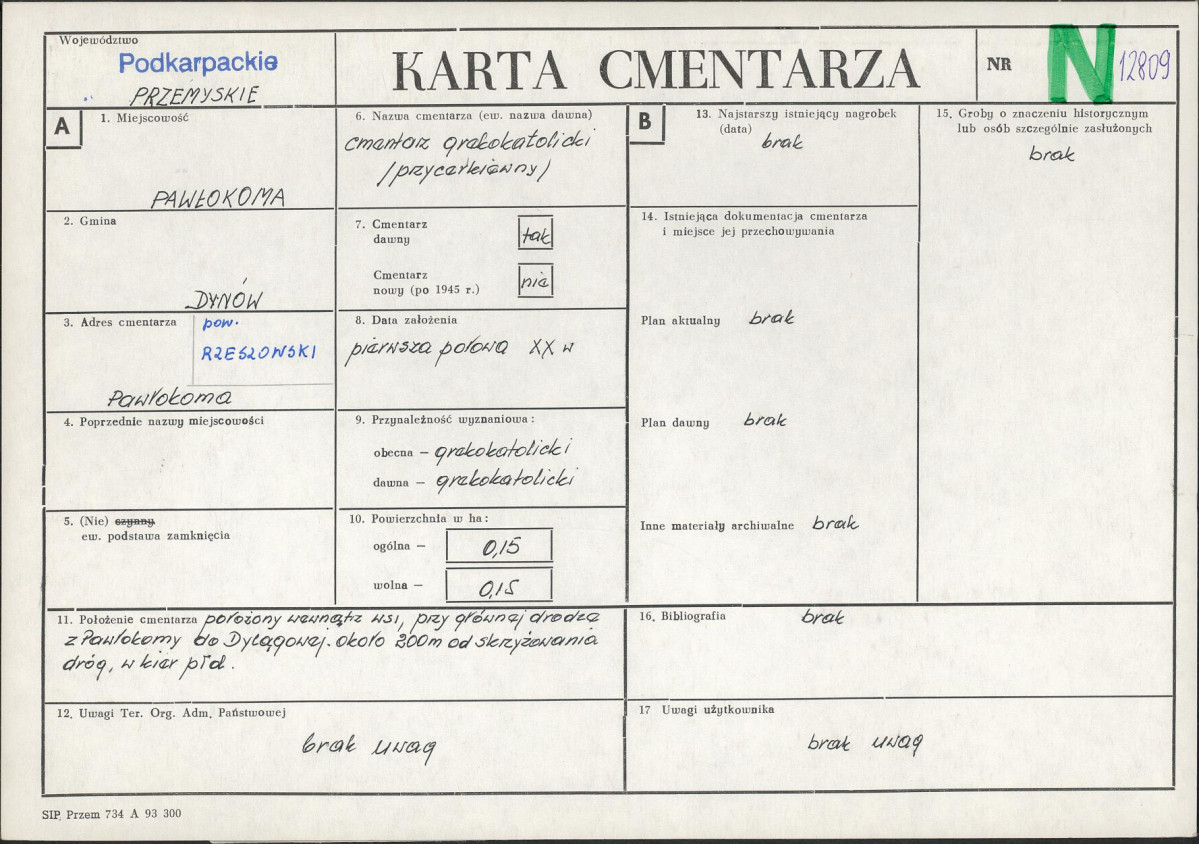 Województwo
Podkarpackie
PRZEMYSKIE
KARTA CMENTARZA
NR
N
12809
A
1. Miejscowość
PAWŁOKOMA
2. Gmina
DYNÓW
3. Adres cmentarza
pow.
RZESZOWSKI
Pawłokoma
4. Poprzednie nazwy miejscowości
5. (Nie) czynny,
ew. podstawa zamknięcia
6. Nazwa cmentarza (ew. nazwa dawna)
cmentarz grekokatolicki
/przycerkiewny/
7. Cmentarz
dawny
tak
Cmentarz
nowy (po 1945 r.)
nie
8. Data założenia
pierwsza połowa XX w
9. Przynależność wyznaniowa:
obecna – grekokatolicki
dawna – grekokatolicki
10. Powierzchnia w ha:
ogólna – 0,15
wolna – 0,15
B
13. Najstarszy istniejący nagrobek
(data)
brak
14. Istniejąca dokumentacja cmentarza
i miejsce jej przechowywania
Plan aktualny brak
Plan dawny brak
Inne materiały archiwalne brak
15. Groby o znaczeniu historycznym
lub osób szczególnie zasłużonych
brak
11. Położenie cmentarza położony wewnątrz wsi, przy głównej drodze
z Pawłokomy do Dylągowej. około 200m od skrzyżowania
dróg, w kier płd.
12. Uwagi Ter. Org. Adm. Państwowej
brak uwag
16. Bibliografia brak
17 Uwagi użytkownika
brak uwag
SIP. Przem 734 A 93 300